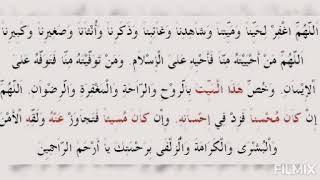 اللَّهُمَّ اغْفِرْ لِحَيِّنَا وَمَيِّتِنَا وَشَاهِدِنَا وَغَائِبِنَا وَذَكَرِنَا وَأُنْثَانَا وَصَغِيرِنَا وَكَبِيرِنَا
اللَّهُمَّ مَنْ أَحْيَيْتَهُ مِنَّا فَأَحْيِهِ عَلَى الْإِسْلَامِ. وَمَنْ تَوَفَّيْتَهُ مِنَّا فَتَوَفَّهُ عَلَى
الْإِيمَانِ. وَخُصَّ هَذَا الْمَيِّتَ بِالرَّوْحِ وَالرَّاحَةِ وَالْمَغْفِرَةِ وَالرِّضْوَانِ. اللَّهُمَّ
إِنْ كَانَ مُحْسِنًا فَزِدْ فِي إِحْسَانِهِ. وَإِنْ كَانَ مُسِيئًا فَتَجَاوَزْ عَنْهُ وَلَقِّهِ الْأَمْنَ
وَالْبُشْرَى وَالْكَرَامَةَ وَالزُّلْفَى بِرَحْمَتِكَ يَا أَرْحَمَ الرَّاحِمِينَ
FILMIX